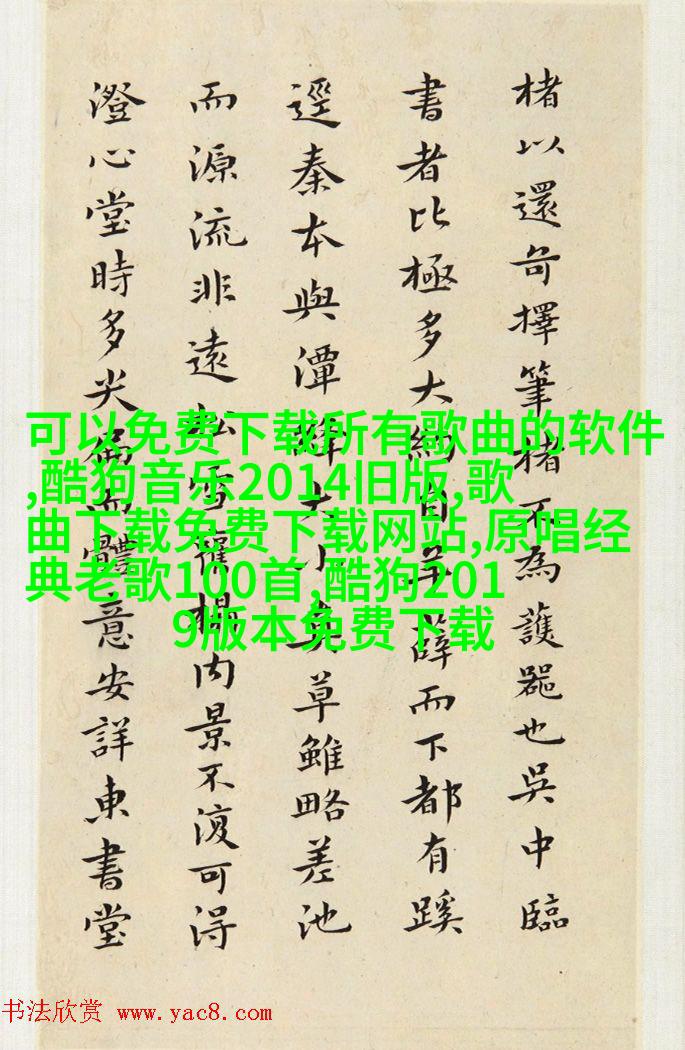 楮以還奇擇筆楮不為護噐也吳中臨
書者比極多大約自羊薛而下都有蹊
逕秦本與潭絳大小真草雖略差池
而源流非遠松雪搨内景不復可得
澄心堂時多尖而體意安詳東書堂
可以免费下载所有歌曲的软件
,酷狗音乐2014旧版,歌
曲下载免费下载网站,原唱经
典老歌100首,酷狗201
9版本免费下载
书法欣赏 www.yac8.com